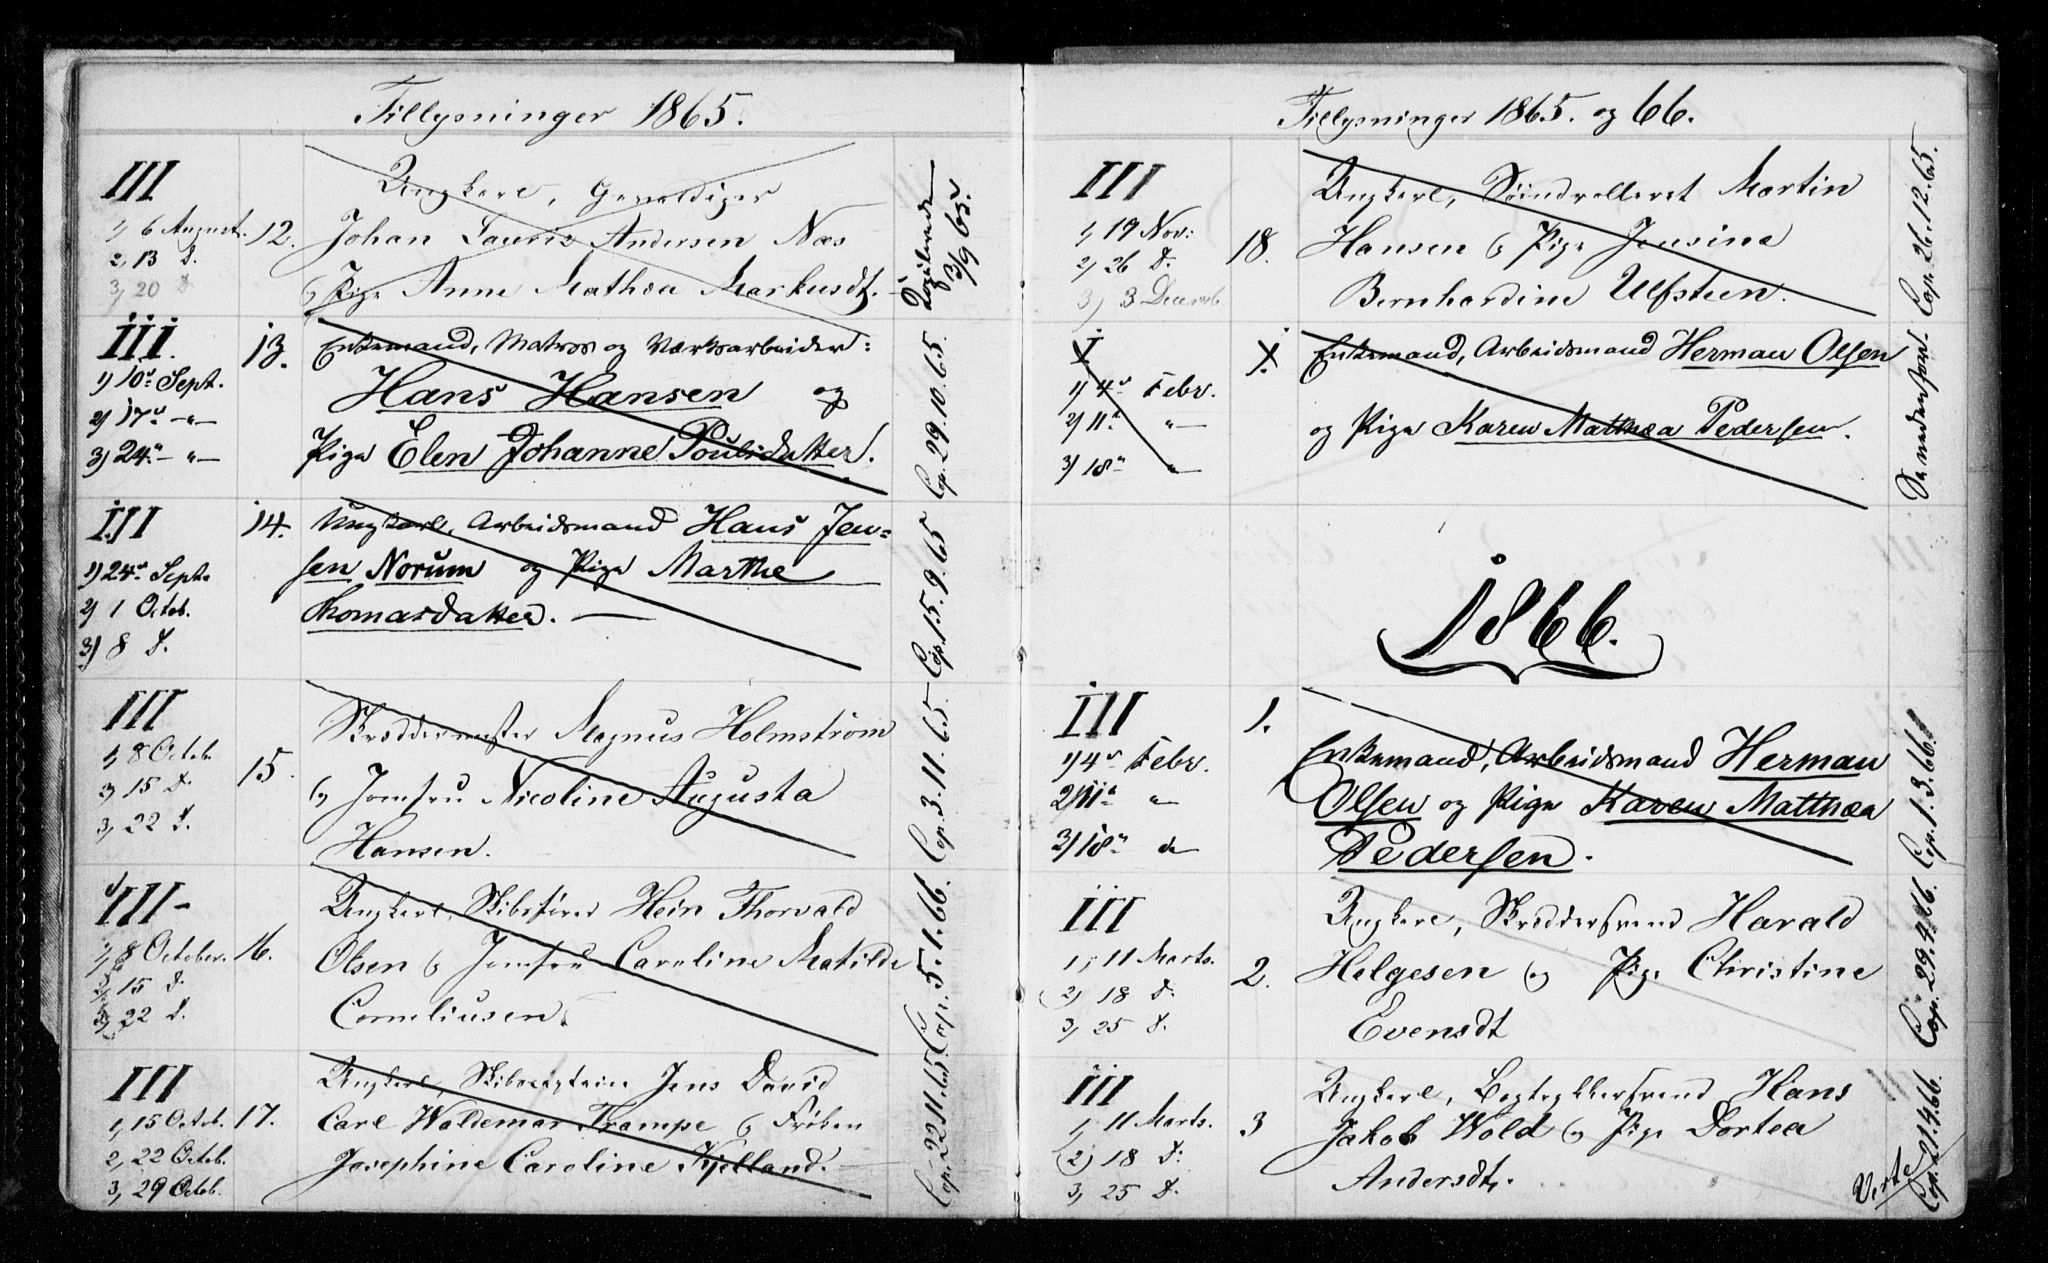 Tillysninger 1865.
III
1, 6 August.
2, 13 D.
3, 20 D
12.
Ungkarl, Gevaldiger
Johan Lauris Andersen Næs
og Pige Anne Mathea Markusdt.
3/9 65.
III.
1) 10de Sept.
2) 17de -"-
3) 24de -"-
13.
Enkemand, Matros og Værksarbeider:
Hans Hansen og
Pige Elen Johanne Poulsdatter.
Cop. 29.10.65.
III
1) 24de Sept.
2) 1 Octob.
3) 8 D.
14.
Ungkarl, Arbeidsmand Hans Jen=
sen Norum og Pige Marthe
Thomasdatter.
Cop. 15.9.65
III
1, 8 Octob.
2, 15 D.
3, 22 D.
15.
Skræddermester Magnus Holmström
og Jomfru Nicoline Augusta
Hansen.
Cop. 3.11.65.
III
1, 8 October.
2, 15 D.
3, 22 D.
16.
Ungkarl, Skibsfører Hein Thorvald
Olsen og Jomfru Caroline Matilde
Corneliusen.
Cop. 5.1.66.
III
1, 15 Octob.
2, 22 Octob.
3, 29 Octob.
17.
Ungkarl, Skibscaptein Jens David
Carl Waldemar Trampe og Frøken
Josephine Caroline Kjelland.
Cop. 22.11.65.
Tillysninger 1865. og 66.
III
1, 19 Nov:
2) 26 D.
3) 3 Decemb
18.
Ungkarl, Søindrulleret Martin
Hansen og Pige Jensine
Bernhardine Ulfsteen.
Cop. 26.12.65.
1) 4de Febr.
2) 11te "
3) 18de "
1.
Enkemand, Arbeidsmand Herman Olsen
og Pige Karen Matthea Pedersen.
Se nedenfor!
1866.
III
1) 4de Febr.
2) 11te "
3) 18de "
1.
Enkemand, Arbeidsmand Herman
Olsen og Pige Karen Matthea
Pedersen.
Cop. 1.3.66.
III
1, 11 Marts.
2) 18 D:
3, 25 D.
2.
Ungkarl, Skræddersvend Harald
Helgesen og Pige Christine
Evensdt
Cop. 29.4.66.
III
1, 11 Marts.
2) 18 D:
3, 25 D.
3
Ungkarl, Bogtrykkersvend Hans
Jakob Wold og Pige Dortea
Andersdt.
Cop. 21.4.66.
Verte